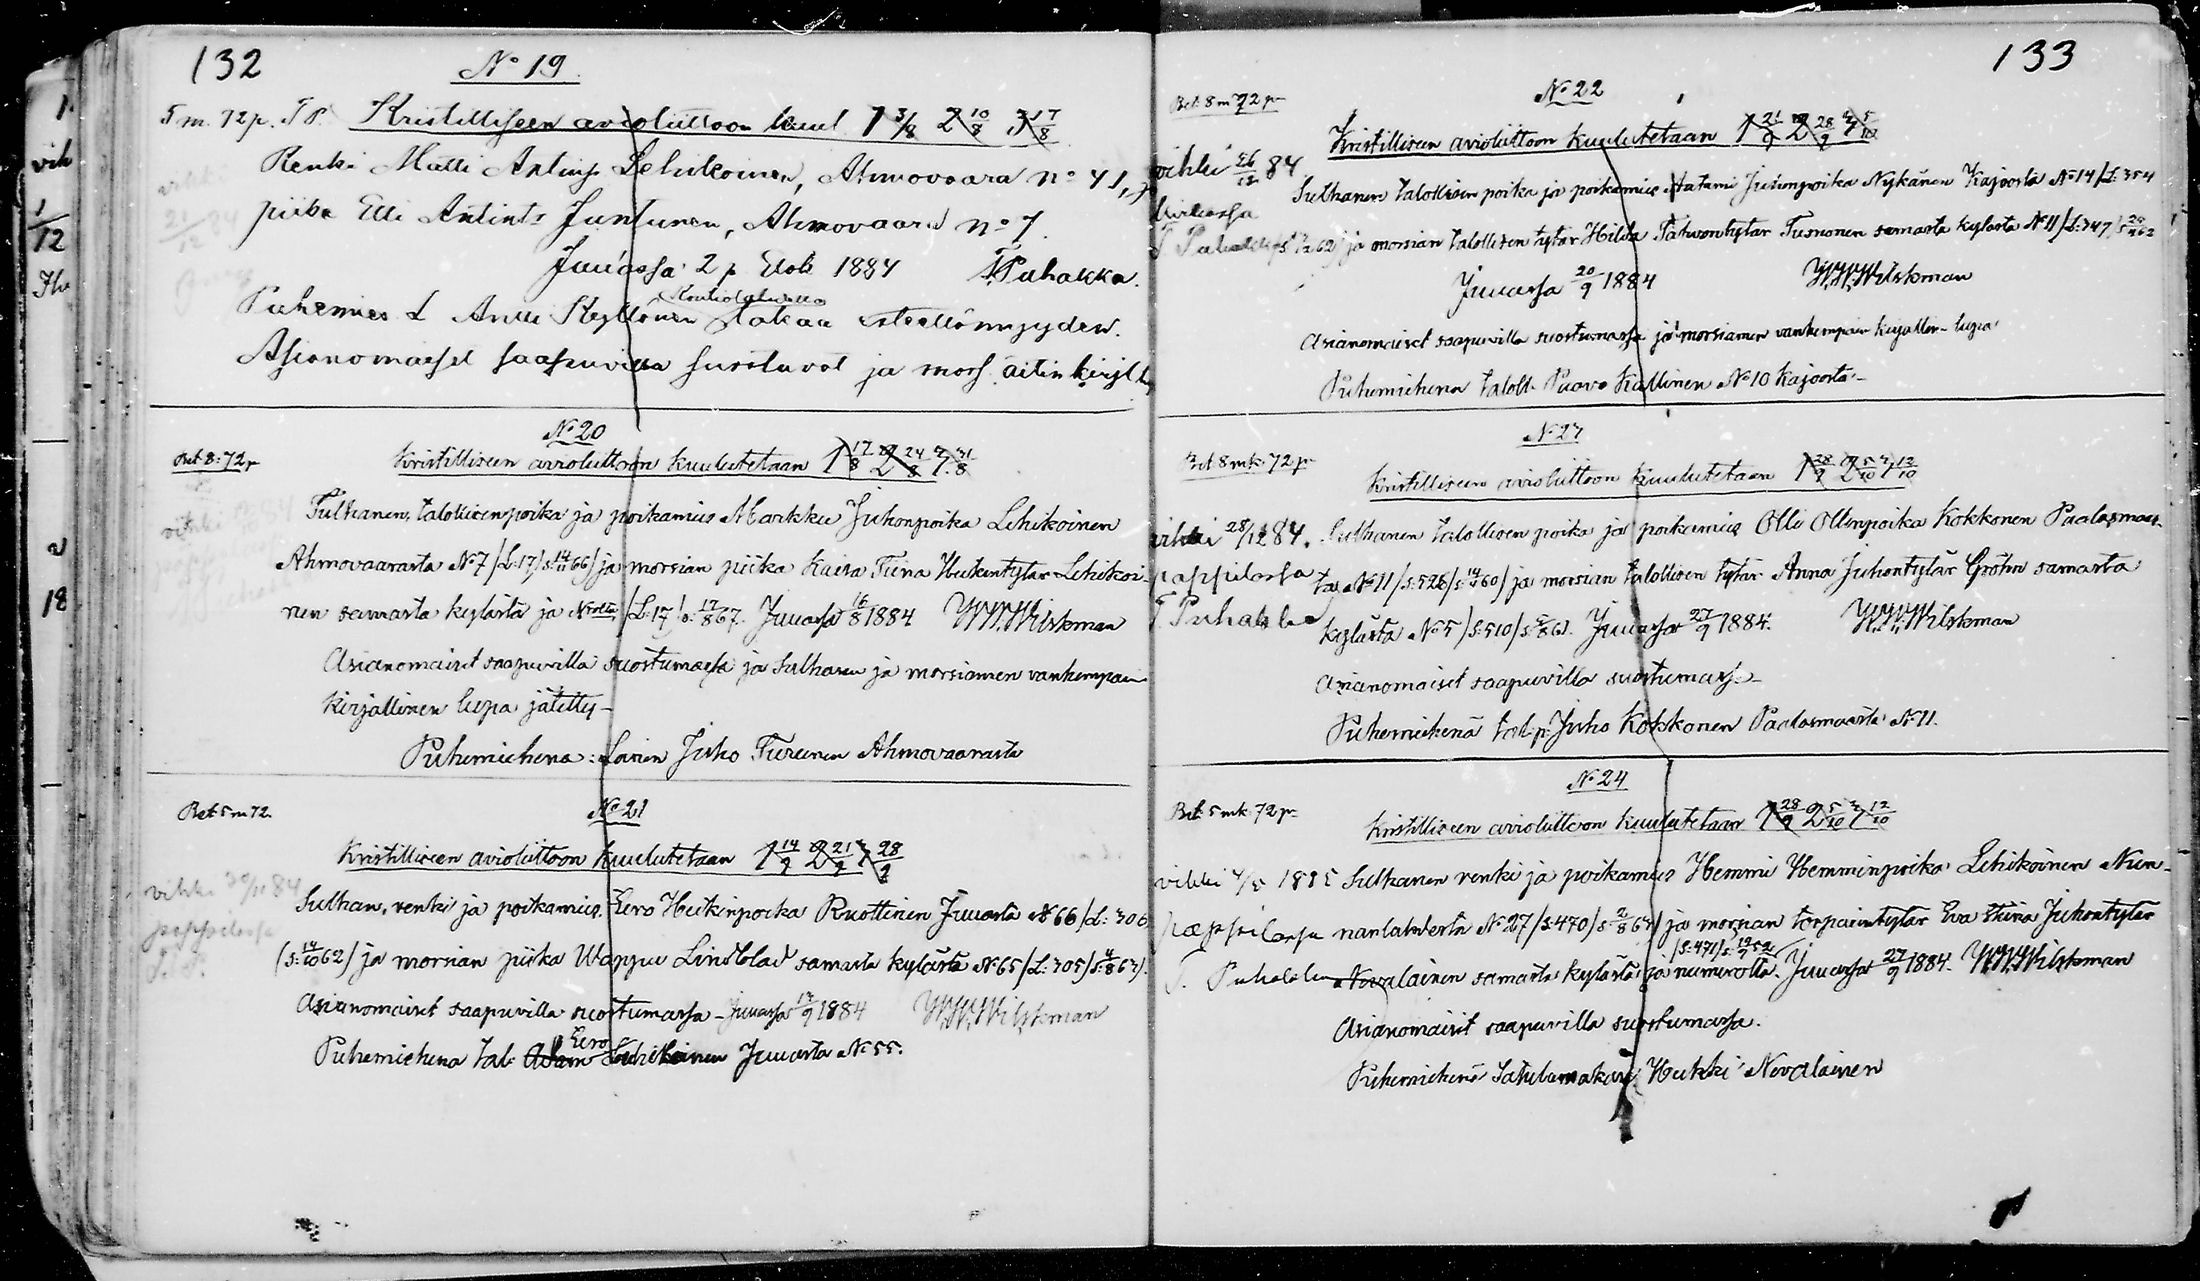 132
No 19
5 m. 72 p. T P. Kristilliseen avioliittoon kuul. 1 3/8 2 10/8 3 17/8
Renki Matti Antinp. Lehikoinen, Ahmovaara no 41, ja
piika Elli Antint. Juntunen, Ahmovaara no 7.
Juuassa 2 p. Elok. 1884 T. Puhakka.
Puhemies L Antti Kyllönen Kontiolahdella takaa esteettömyyden.
Asianomaiset saapuvilla suostuvat ja mors. äitin kirjl.
No 20
Bet 8:72 p
Kristilliseen avioliittoon kuulutetaan 1 17/8 2 24/8 3 31/8
Sulhanen, talollisen poika ja poikamies Markku Juhonpoika Lehikoinen
Ahmovaarasta No 7 /L:17/ s: 14/11 66/ ja morsian piika Kaisa Tiina Heikintytar Lehikoi-
nen samasta kylästä ja Nrolta /L:17/ s: 17/8 67. Juuassa 16/8 1884 W.W. Wilskman
Asianomaiset saapuvilla suostumassa ja sulhasen ja morsiamen vanhempain
kirjallinen lupa jätetty -
Puhemiehenä: Loisen Juho Turunen Ahmovaarasta
No 21
Bet 5 m 72.
Kristilliseen avioliittoon kuulutetaan 1 14/9 2 21/9 3 28/9
vihki 30/11 84
pappilassa
T. P.
Sulhan. renki ja poikamies Eero Heikinpoika Ruottinen Juuasta No 66 /L: 306
(s: 14/10 62) ja morsian piika Wappu Lindblad samasta kylästä No 65 /L: 305/ s: 4/8 63/.
Asianomaiset saapuvilla suostumassa - Juuassa 13/9 1884 W.W. Wilskman
Puhemiehenä tal: Adam Eero Lehikoinen Juuasta No 55.
133
No 22
Bet: 8 m 72 p
Kristilliseen avioliittoon kuulutetaan 1 21/9 2 28/9 3 5/10
vihki 26/12 84
kirkossa
T. Puhakka
Sulhanen talollisen poika ja poikamies Aatami Juhonpoika Nykänen Kajoosta No 14 /L: 354
ja morsian talollisen tytär Hilda Tahvontytar Tuononen samasta kylästä No 11 /L: 347/
Juuassa 20/9 1884 W.W. Wilskman
Asianomaiset saapuvilla suostumassa ja morsiamen vanhempain kirjallin- lupa
Puhemiehenä taloll. Paavo Kallinen No 10 Kajoosta -
No 23
Bet 8 mk 72 p
Kristilliseen avioliittoon kuulutetaan 1 28/9 2 5/10 3 12/10
vihki 28/12 84.
pappilassa
T. Puhakka
Sulhanen talollisen poika ja poikamies Olli Ollinpoika Kokkonen Paalasmaas-
ta No 11 /s: 526/ s: 14/5 60/ ja morsian talollisen tytär Anna Juhontytär Gröhn samasta
kylästä No 5 /s: 510/ s: 5/8 61. Juuassa 27/9 1884. W.W. Wilskman
Asianomaiset saapuvilla suostumassa -
Puhemiehenä tal. p. Juho Kokkonen Paalasmaasta No 11.
No 24
Bet. 5 mk 72 p
Kristilliseen avioliittoon kuulutetaan 1 28/9 2 5/10 3 12/10
vihki 4/5 1885
pappilassa
T. Puhakka
Sulhanen renki ja poikamies Hemmi Hemminpoika Lehikoinen Nun-
nanlahdesta No 27 /s: 470/ s: 2/8 63/ ja morsian torpairintytar Eva Stiina Juhontytar
Nevalainen samasta kylästä ja numerolta /s: 471/ s: 19/9 52/. Juuassa 27/9 1884. W.W. Wilskman
Asianomaiset saapuvilla suostumassa.
Puhemiehenä Satulamakari Heikki Nevalainen